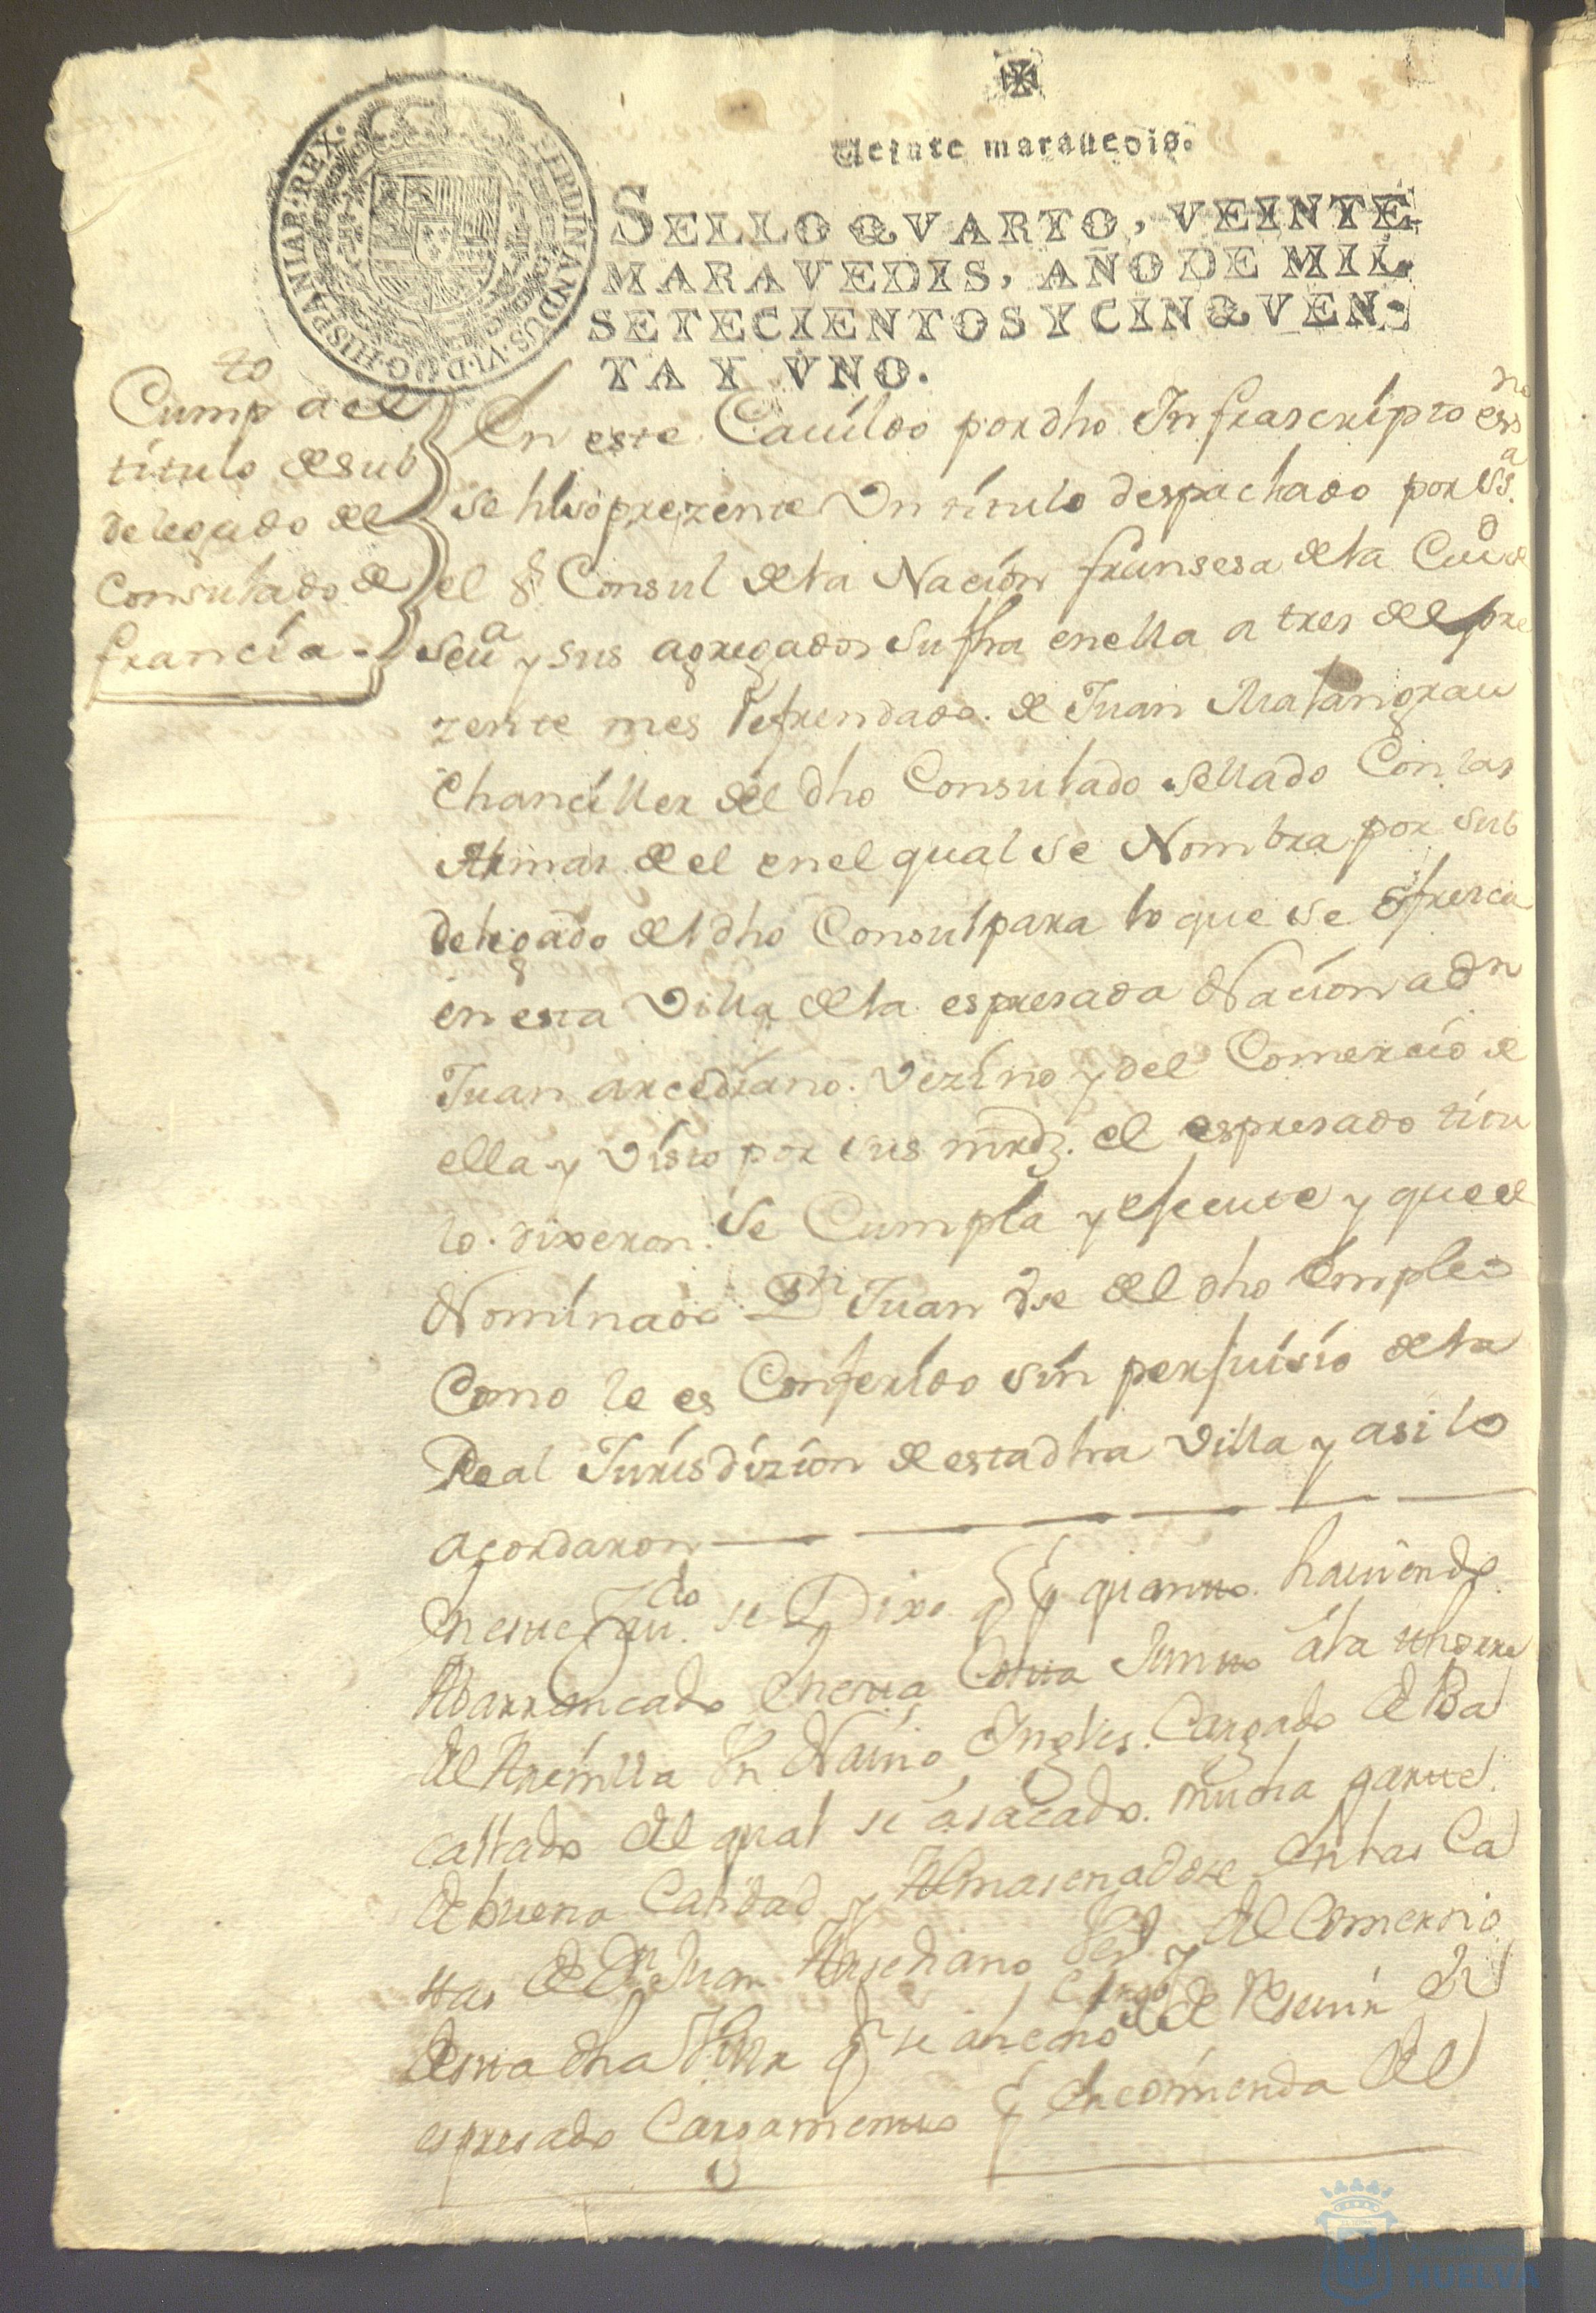 Veinte marauedis.
SELLO QVARTO, VEINTE
MARAVEDIS, AÑO DE MIL
SETECIENTOS Y CINQVEN-
TA Y VNO.
FERDINANDUS·VI·D·G·HISPANIAR·REX·
Cump.to del
titulo de sub
delegado del
Consulado de
francia-
En este Cauildo por dho Infrascripto essno
se hiso prezente Vn titulo despachado por Ssa.
el Sr. Consul de la Nacion fransesa de la Ciud de
Seua y sus agregados su fha en ella a tres del pre
zente mes Refrendado. de Juan
Chanciller del dho Consulado sellado Con las
Armas de el en el qual se Nombra por sub
delegado del dho Consul para lo que se Ofresca
en esta Villa de la espresada Nacion a Dn
Juan arcediano. Vezino y del Comercio de
ella y Visto por sus mrdz. el espresado titu
lo. dixeron. Se Cumpla y esecute y que el
Nominado Dn Juan Vse del dho Empleo
Como le es Conferido sin perjuisio de la
Real Jurisdizion de esta dha Villa y asi lo
acordaron
En este Cauido se Dixo q p quanto. hauiendo
Abarrancado En esta Costa Junto á la
del Aremilla Vn Nauio Ingles. Cargado de Ba
callado del qual se á sacado. mucha parte
de buena Calidad y Almasenadose En las Ca
sas de Dn Juan Arsediano Vesº y del Comersio
de esta dha Villa q se a hecho Cargo de Reseuir el
espresado Cargamento p Encomienda del
HUELVA